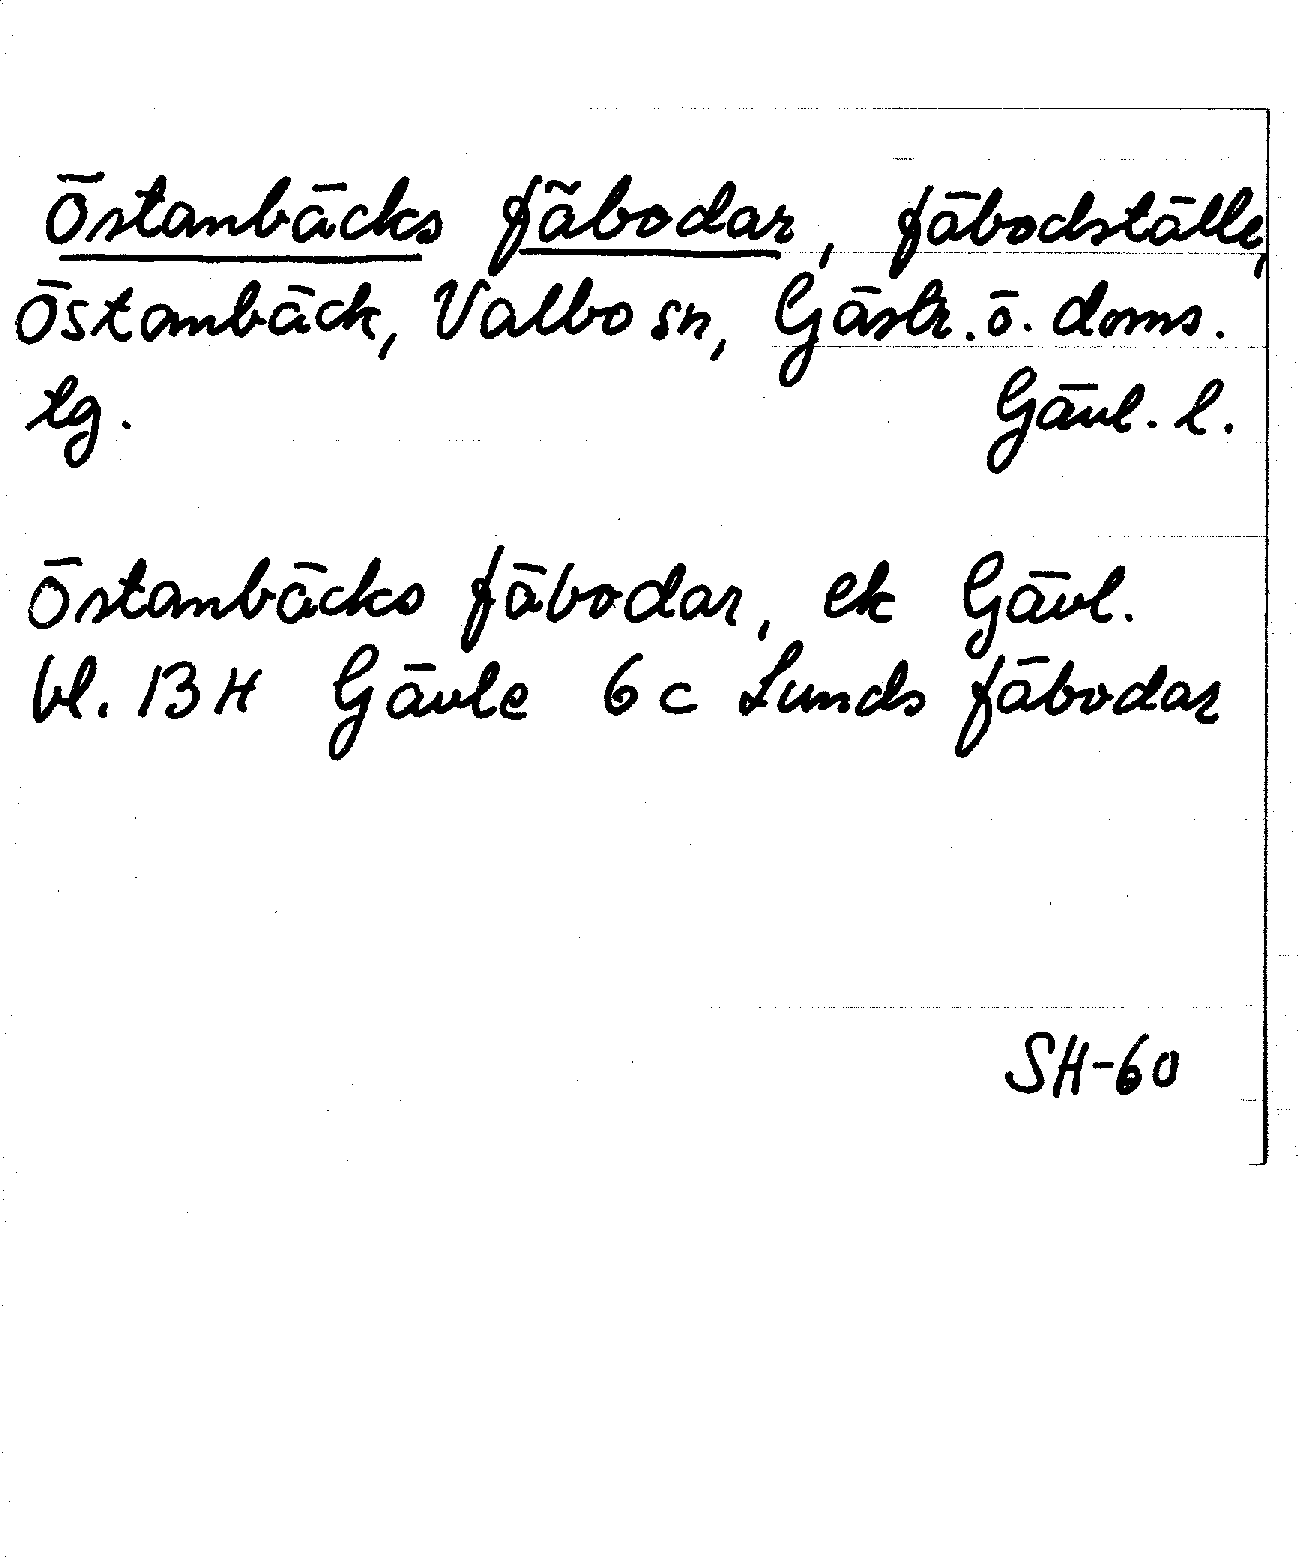 Östanbäcks fäbodar, fäbodställe,
Östanbäck, Valbo sn, Gästr. ö. doms.
tg. Gävl. l.
Östanbäcks fäbodar, ek Gävl.
bl. 13 H Gävle 6 c Lunds fäbodar
SH-60